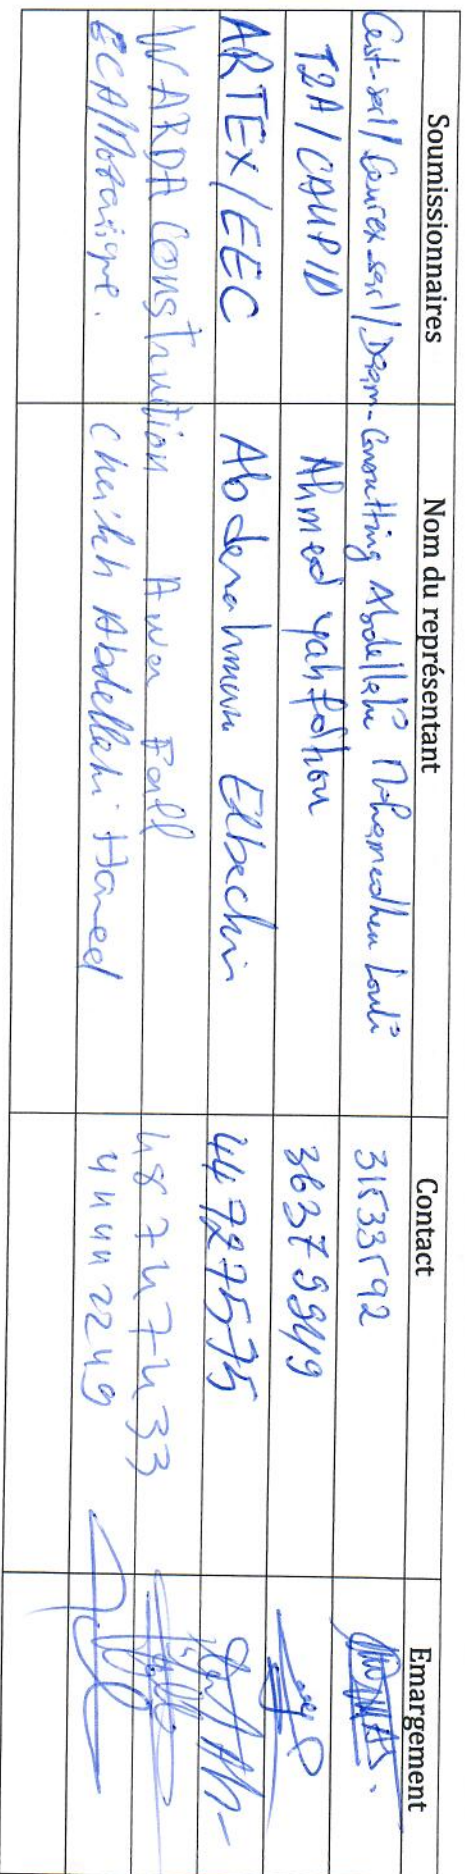 Soumissionnaires Nom du représentant Contact Emargement
Cast-sarl/Conrex-sarl/Deam-Consulting Abdellahi 31533592
T2A/CAUPID Ahmed yahfdhou 36379949
ARTEX/EEC Abderahmane Elbechir 44727575
WARDA Construction Awa Fall 48747433
ECA/Mozaique. Cheikh Abdellahi Hamed 44442249